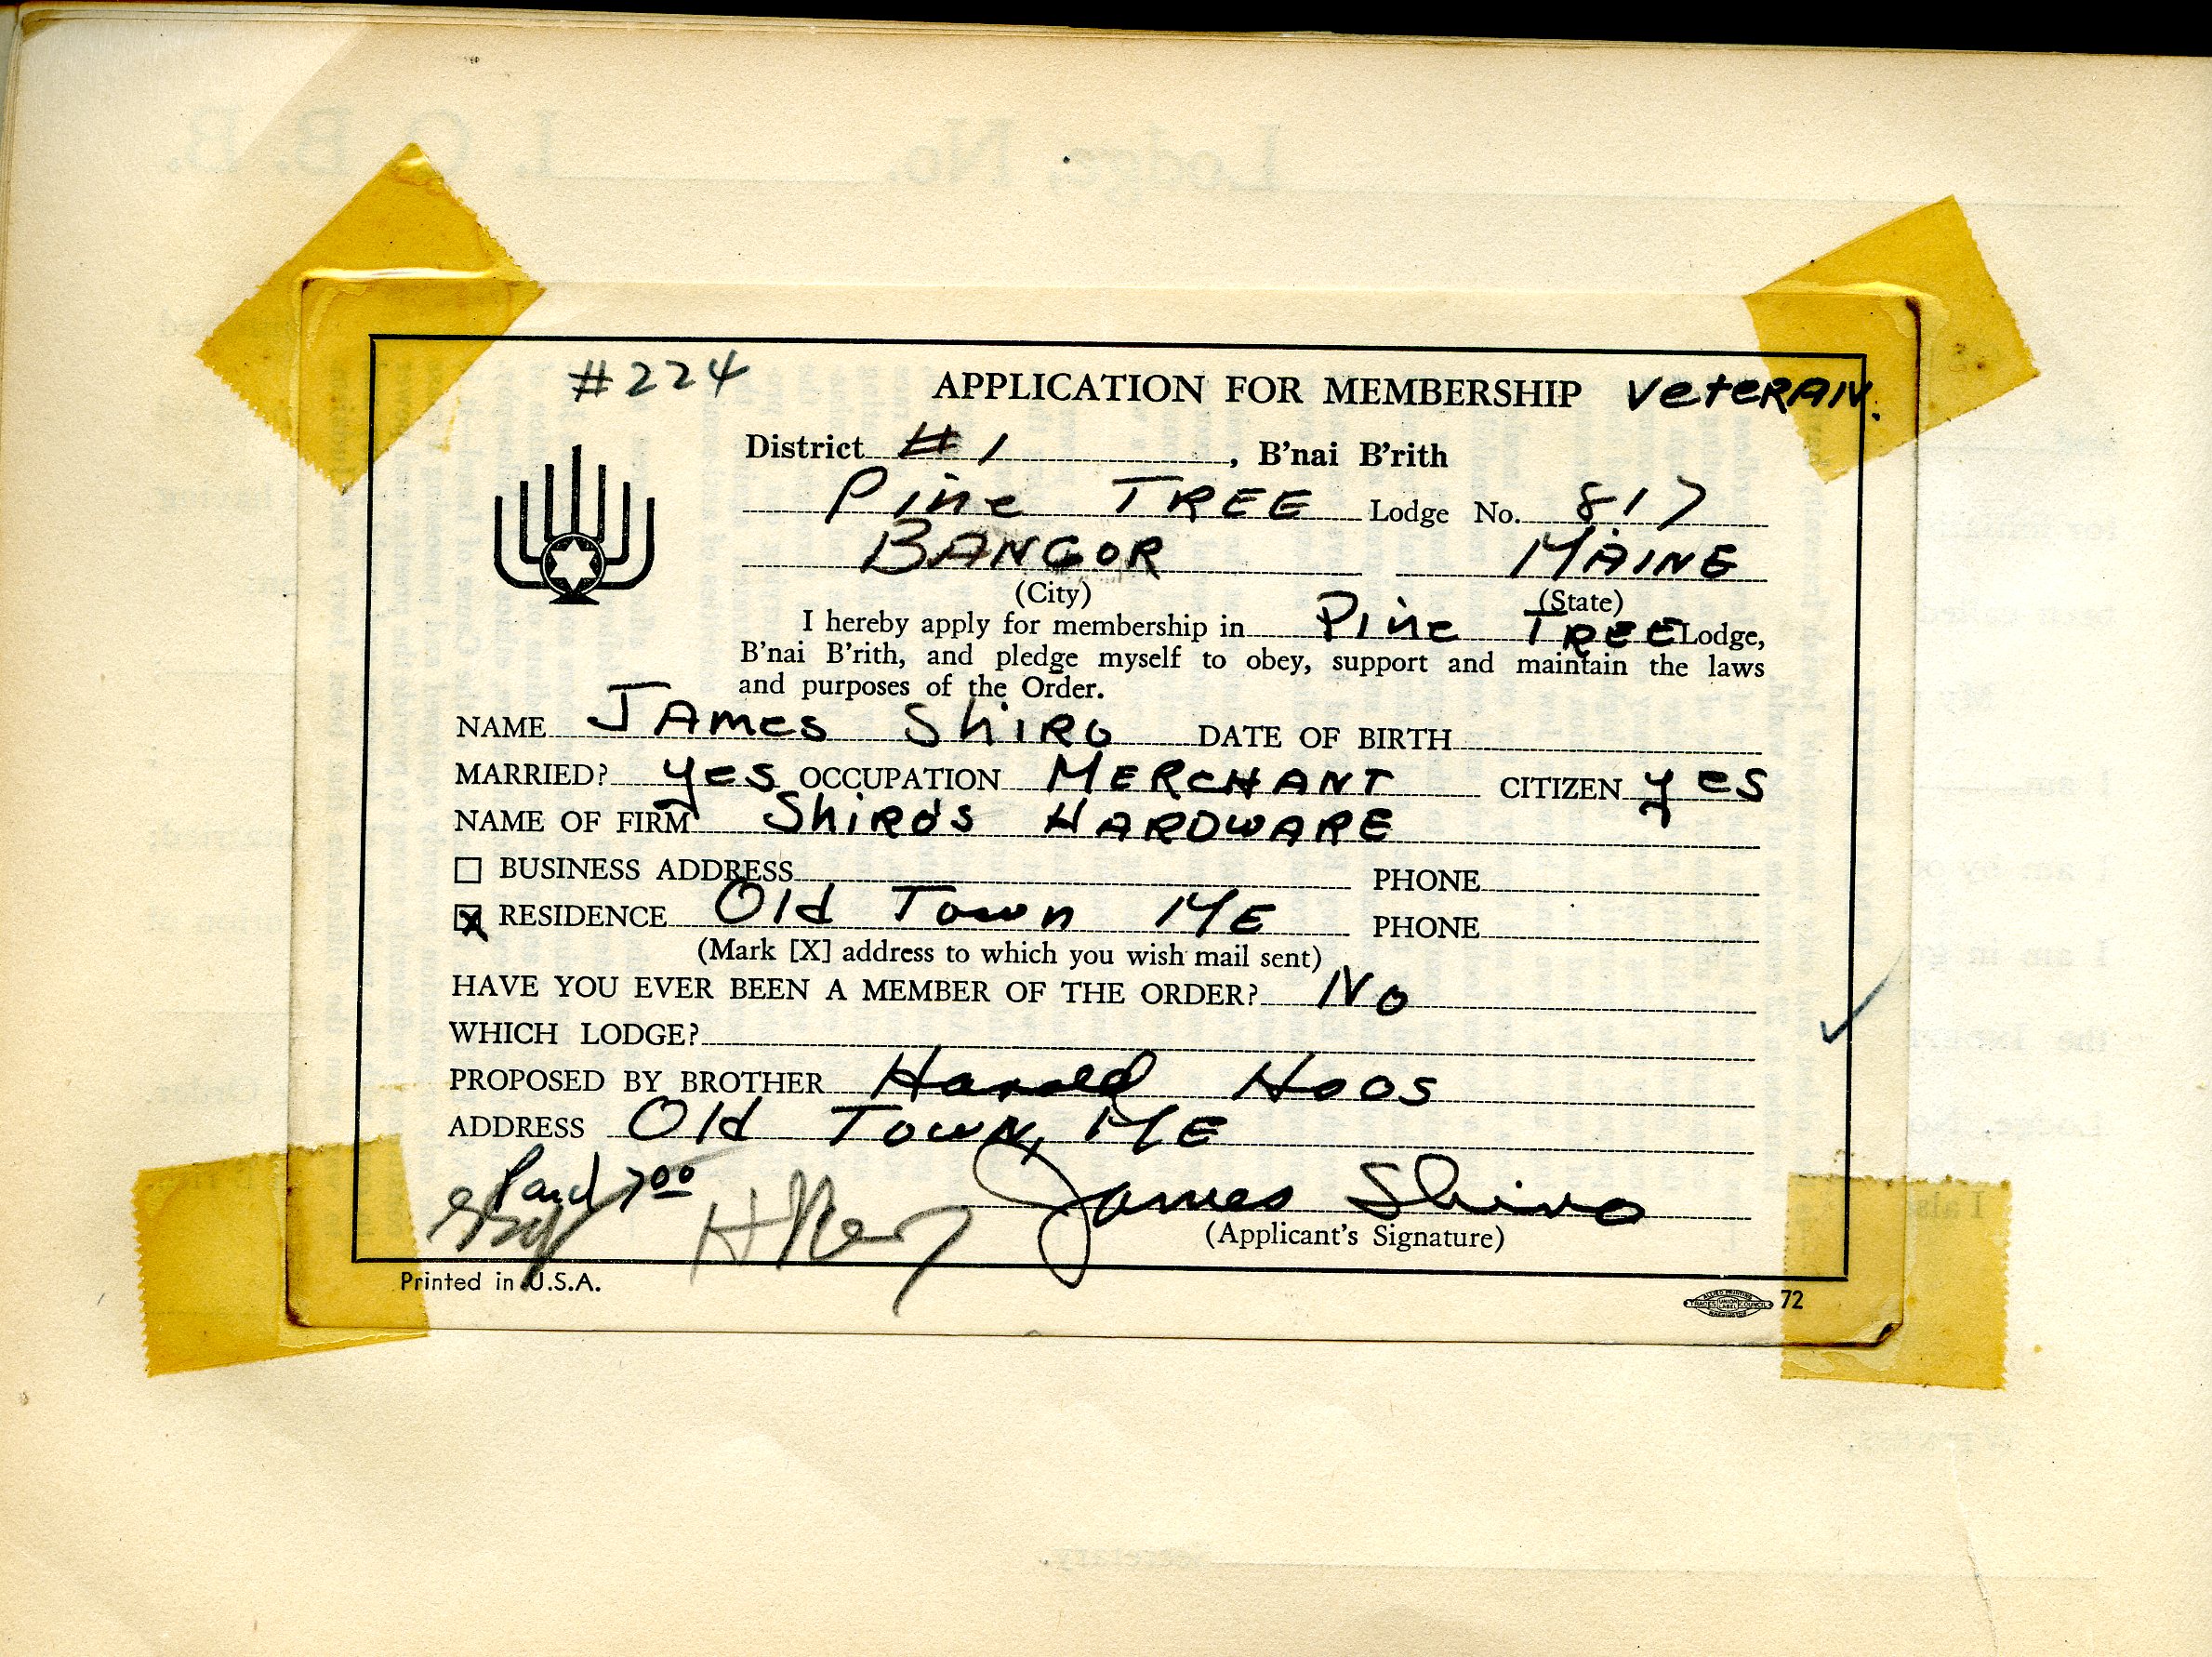 #224
APPLICATION FOR MEMBERSHIP VeteRAN.
District #1, B'nai B'rith
Pine TREE Lodge No. 817
BANGOR MAINE
(City) (State)
I hereby apply for membership in Pine TREE Lodge,
B'nai B'rith, and pledge myself to obey, support and maintain the laws
and purposes of the Order.
NAME JAmes ShiRo DATE OF BIRTH
MARRIED? yes OCCUPATION MERCHANT CITIZEN yes
NAME OF FIRM ShiRo's HARDWARE
BUSINESS ADDRESS PHONE
X RESIDENCE Old Town ME PHONE
(Mark [X] address to which you wish mail sent)
HAVE YOU EVER BEEN A MEMBER OF THE ORDER? No
WHICH LODGE?
PROPOSED BY BROTHER Harold Hoos
ADDRESS Old Town, ME
Paid 7.00
James Shiro
(Applicant's Signature)
Printed in U.S.A.
72